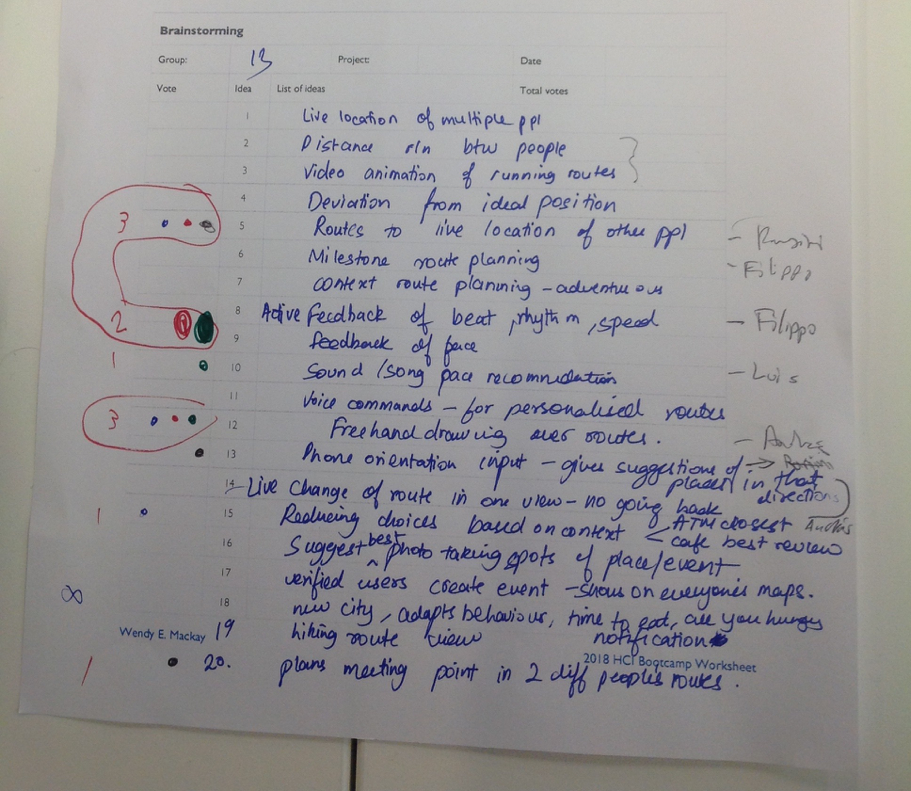 Brainstorming
Group: 13 Project: Date
Vote Idea List of ideas Total votes
1 Live location of multiple ppl
2 Distance r/n btw people
3 Video animation of running routes
4 Deviation from ideal position
3 5 Routes to live location of other ppl
6 Milestone route planning - Filippo
7 context route planning - adventurous
2 8 Active feedback of beat, rhythm, speed - Filippo
9 feedback of pace
1 10 Sound/song pace recommendation - Luis
11 Voice commands - for personalised routes
3 12 Freehand drawing over routes.
13 Phone orientation input - gives suggestions of places in that directions
14 - Live change of route in one view - no going back
1 15 Reducing choices based on context < ATM closest
cafe best review
16 Suggest best photo taking spots of place/event
17 verified users create event - shows on everyone's maps.
∞ 18 new city, adapts behaviour, time to eat, are you hungry notification
Wendy E. Mackay 19 hiking route view
2018 HCI Bootcamp Worksheet
1 20. plans meeting point in 2 diff people's routes.